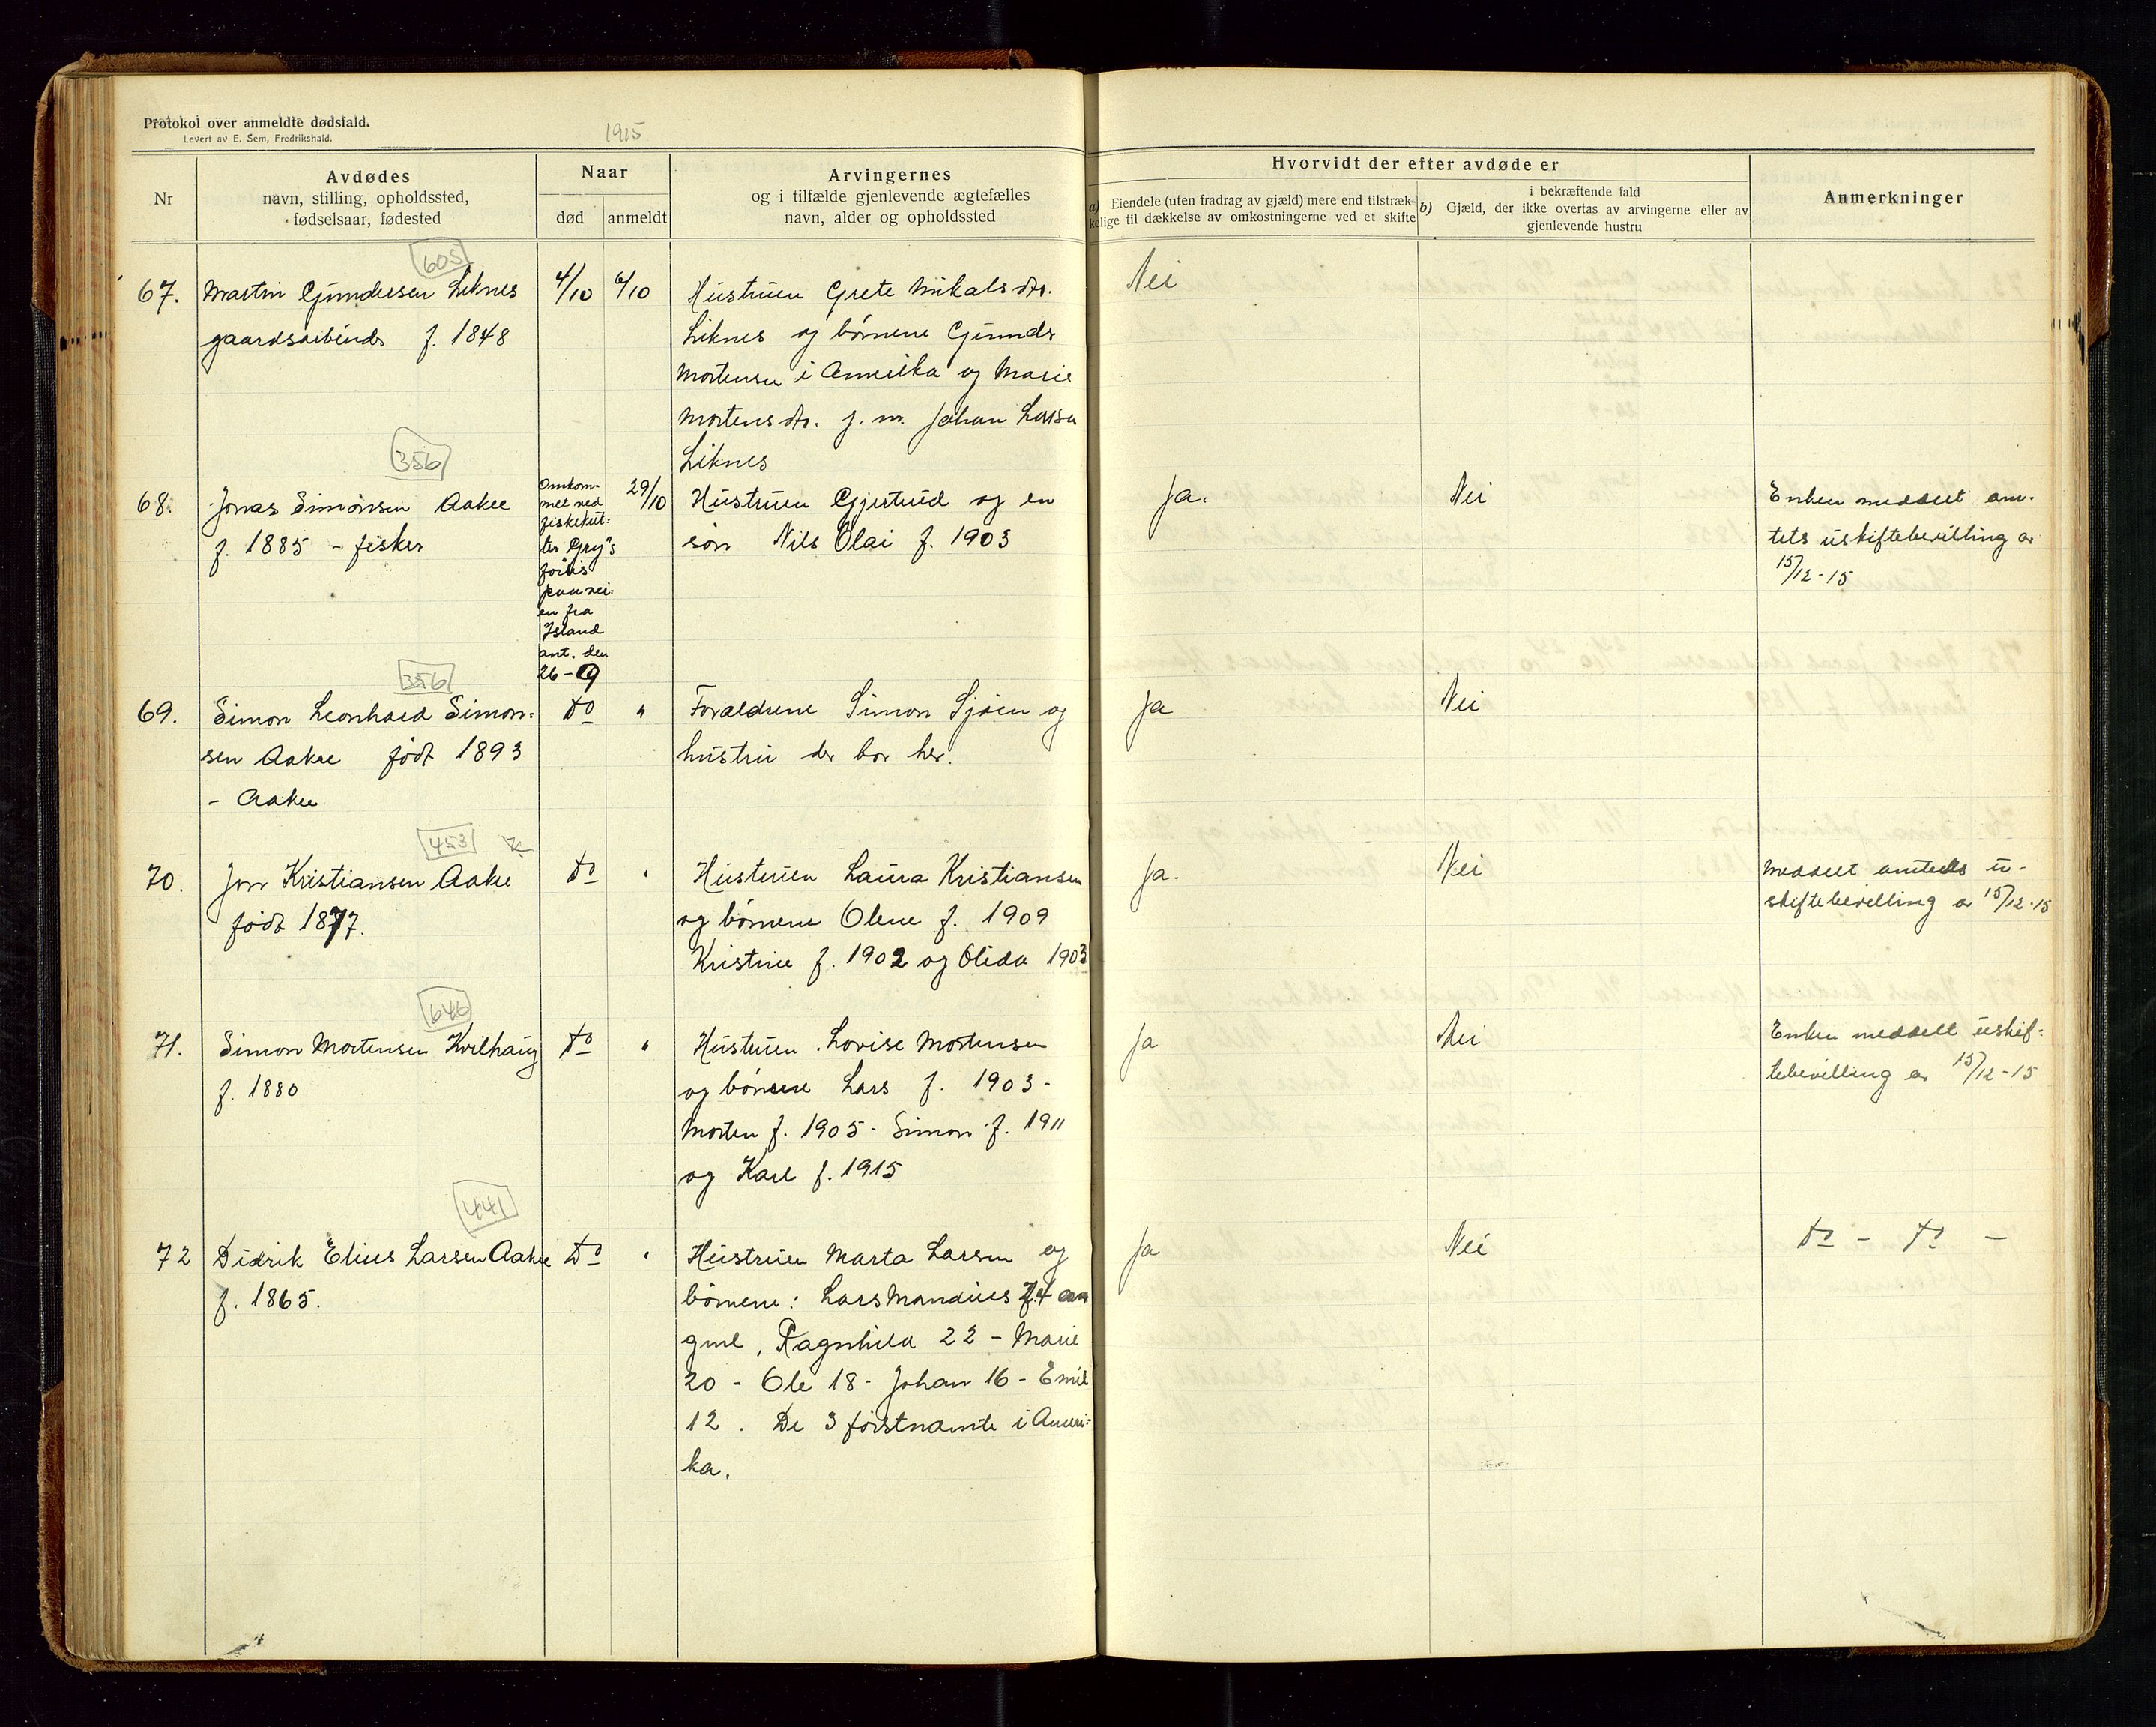 Protokol over anmeldte dødsfald.
Levert av E. Sem, Fredrikshald.
1915
Nr
Avdødes
navn, stilling, opholdssted,
fødselsaar, fødested
Naar
død
anmeldt
Arvingernes
og i tilfælde gjenlevende ægtefælles
navn, alder og opholdssted
Hvorvidt der efter avdøde er
a) Eiendele (uten fradrag av gjæld) mere end tilstræk-
kelige til dækkelse av omkostningerne ved et skifte
b) i bekræftende fald
Gjæld, der ikke overtas av arvingerne eller av
gjenlevende hustru
Anmerkninger
605
67. Martin Gundersen Liknes
gaardsarbeider f. 1848
4/10
6/10
Hustruen Grete Mikalsdtr.
Liknes og børnene Gunder
Mortensen i Amerika og Marie
Mortensdtr. g. m. Johan Larsen
Liknes
Nei
356
68. Jonas Simonsen Aakre
f. 1885 - fisker
Omkom-
met ved
fiskekut-
ter Gry's
forlis
paa vei-
en fra
Island
ant. den
26-9
29/10
Hustruen Gjertrud og en
søn Nils Olai f. 1903
Ja.
Nei
Enken meddelt am-
tets uskiftebevilling av
15/12-15
356
69. Simon Leonhard Simon-
sen Aakre født 1893
- Aakre
do
"
Forældrene Simon Sjøen og
hustru der bor her.
Ja
Nei
453
70. Jon Kristiansen Aakre
født 1877.
do
"
Hustruen Laura Kristiansen
og børnene Olene f. 1909
Kristine f. 1902 og Olida 1903
Ja.
Nei
Meddelt amtets u-
skiftebevilling av 15/12-15
646
71. Simon Mortensen Kvilhaug
f. 1880
do
"
Hustruen Lovise Mortensen
og børnene Lars f. 1903 -
Morten f. 1905 - Simon f. 1911
og Karl f. 1915
Ja
Nei
Enken meddelt uskif-
tebevilling av 15/12-15
441
72 Didrik Elius Larsen Aakre
f. 1865.
do
"
Hustruen Marta Larsen og
børnene: Lars Mandius 24 aar
gml, Ragnhild 22 - Marie
20 - Ole 18 - Johan 16 - Emil
12. De 3 førstnævnte i Ameri-
ka.
Ja
Nei
do - do -